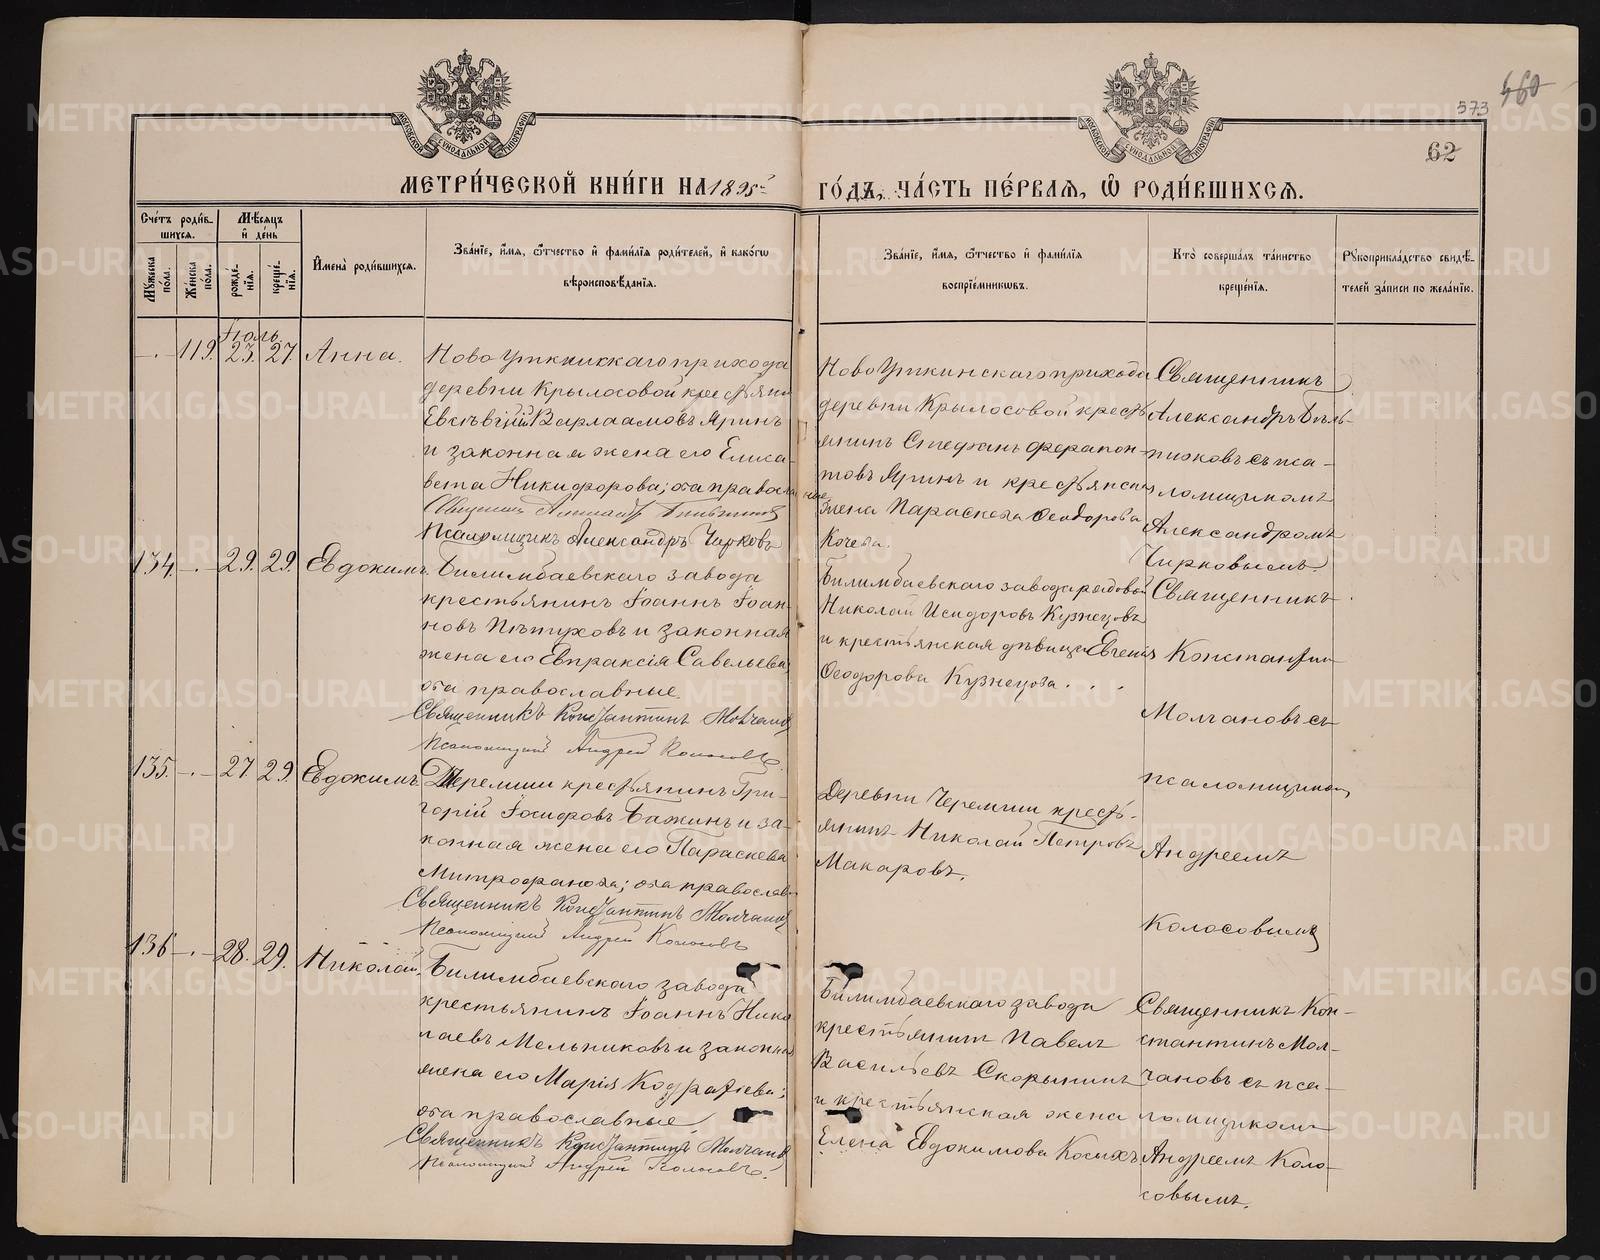 573 460
62
МОСКОВСКОЙ СѴНОДАЛЬНОЙ ТИПОГРАФІИ
МОСКОВСКОЙ СѴНОДАЛЬНОЙ ТИПОГРАФІИ
МЕТРИ́ЧЕСКОЙ КНИ́ГИ НА 1895й ГО́ДЪ, ЧА́СТЬ ПЕ́РВАѦ, Ѿ РОДИ́ВШИХСѦ.
Сче́тъ роди́в-
шихся.
Мѣ́сяцъ
и де́нь
Мꙋжеска по́ла.
Же́нска по́ла.
рожде́-
нїя.
креще́-
нїя.
Имена̀ роди́вшихся.
Зва́нїе, и́мя, ѻ́тчество и фами́лїя роди́телей, и како́гѡ
вѣроисповѣ́данїя.
Зва́нїе, и́мя, ѻ́тчество и фами́лїя
воспрїе́мникѡвъ.
Кто̀ соверша́лъ та́инство
креще́нїя.
Рꙋкоприкла́дство свидѣ́-
телей за́писи по жела́нїю.
Іюль
—.— 119. 23. 27. Анна.
Ново Уткинскаго прихода
деревни Крылосовой крестьянин
Евсѣвій Варлаамовъ Яринъ
и законная жена его Елиса-
вета Никифорова; оба православные
Псаломщикъ Александръ Чирковъ
Ново Уткинскаго прихода
деревни Крылосовой кресть
янинъ Стефанъ Ферапон-
товъ Яринъ и крестьянская
жена Параскева Ѳеодорова
Кочева.
Священникъ
Александръ Бѣль-
тюковъ съ пса-
ломщикомъ
Александромъ
Чирковымъ.
134. —.— 29. 29. Евдокимъ.
Билимбаевскаго завода
крестьянинъ Іоаннъ Іоан-
новъ Пѣтуховъ и законная
жена его Евпраксія Савельева
оба православные.
Священникъ Константинъ Молчановъ
Псаломщикъ Андрей Колосовъ.
Билимбаевскаго завода рядовой
Николай Исидоровъ Кузнецовъ
и крестьянская дѣвица Евгенія
Ѳеодорова Кузнецова . . .
Священникъ
Константин
Молчановъ съ
псаломщиком
Андреемъ
Колосовымъ
135. —.— 27. 29. Евдокимъ.
Черемши крестьянинъ Гри-
горій Іосифовъ Бажинъ и за-
конная жена его Параскева
Митрофанова; оба православн
Священникъ Константинъ Молчановъ
Псаломщикъ Андрей Колосовъ
Деревни Черемши кресть-
янинъ Николай Петровъ
Макаровъ.
136 —.— 28. 29. Николай.
Билимбаевскаго завода
крестьянинъ Іоаннъ Нико
лаевъ Мельниковъ и законная
жена его Марія Кодратіева;
оба православные.
Священникъ Константинъ Молчановъ
Псаломщикъ Андрей Колосовъ.
Билимбаевскаго завода
крестьянинъ Павелъ
Васильевъ Скорынинъ
и крестьянская жена
Елена Евдокимова Косыхъ
Священникъ Кон-
стантинъ Мол-
чановъ съ пса-
ломщикомъ
Андреемъ Коло-
совымъ.
METRIKI.GASO-URAL.RU